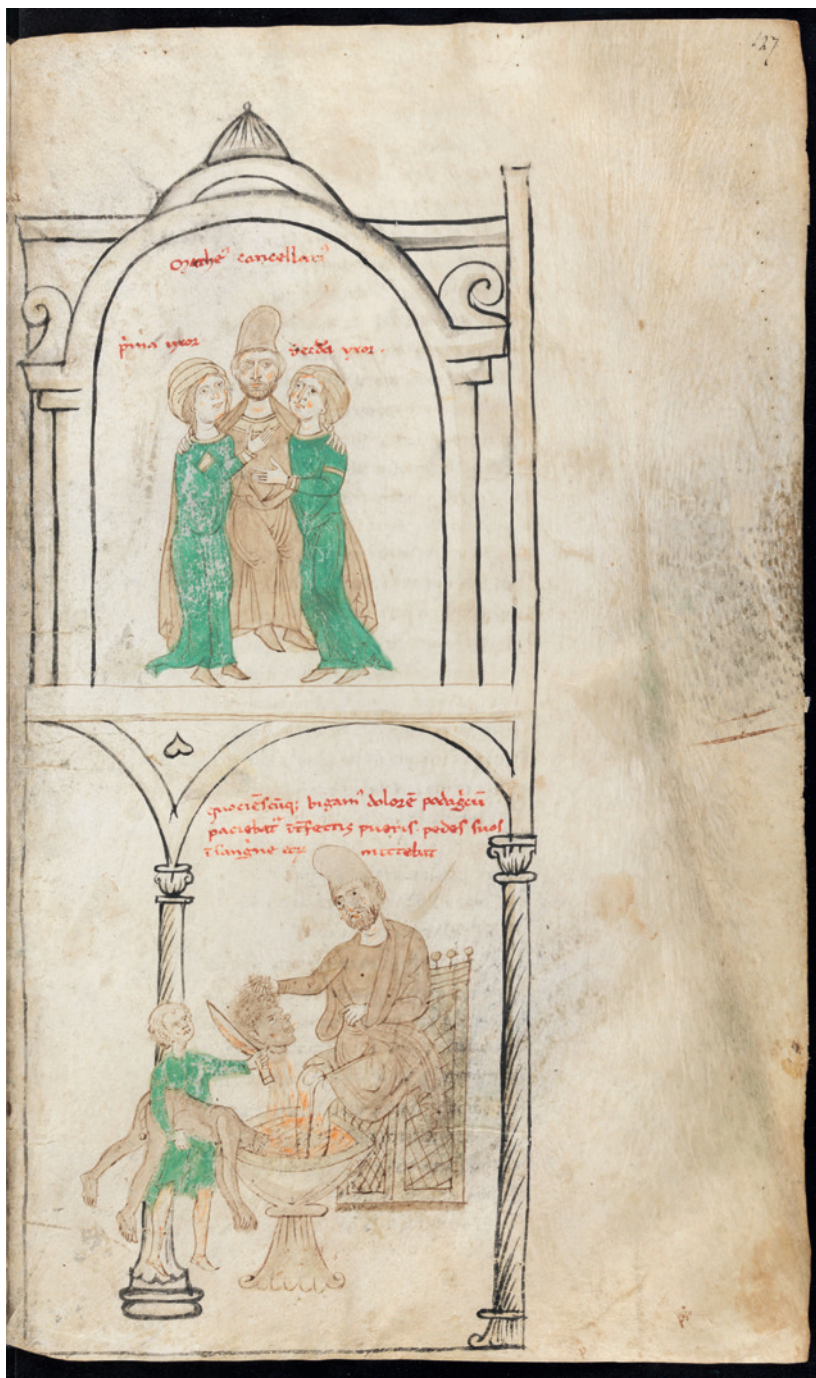 127
Mathe᷒ cancellari᷒
p̄ma uxor
secda uxor.
quociēscūq; bigam᷒ dolorē podagcū
paciebat᷑ īt̄fectis pueris pedes suos
ī sangne eoꝝ mittebat